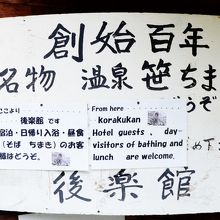 創始百年
名物 温泉笹ちま
どうぞ
ここより
後楽館 です
宿泊・日帰り入浴・昼食
(そば ちまき)のお客
様はどうぞ。
From here
Korakukan
Hotel guests 、 day-
visitors of bathing and
lunch are welcome.
め下
後楽館